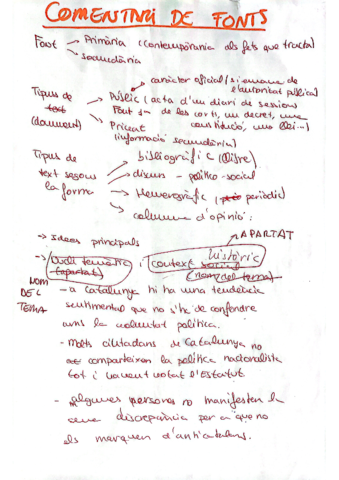 COMENTARI DE FONTS
Font → Primària (Contemporània als fets que tracta)
→ secundària
caràcter oficial (si emana de l'autoritat pública)
Tipus de → Públic (acta d'un diari de sessions
text de les corts, un decret, una
(document) → Privat constitució, una llei...)
(informació secundària)
Tipus de → bibliogràfic (llibre)
text segons → discurs - político-social
la forma → Hemerogràfic (periòdic)
→ columna d'opinió.
→ Idees principals
→ APARTAT
→ temàtic (apartat) context històric
(nom del tema)
NOM DEL TEMA
- a Catalunya hi ha una tendència
sentimental que no s'ha de confondre
amb la voluntat política.
- Molts ciutadans de Catalunya no
comparteixen la política nacionalista
tot i haver votat l'Estatut.
- algunes persones no manifesten la
seva discrepància per a que no
els marquen d'anticatalans.